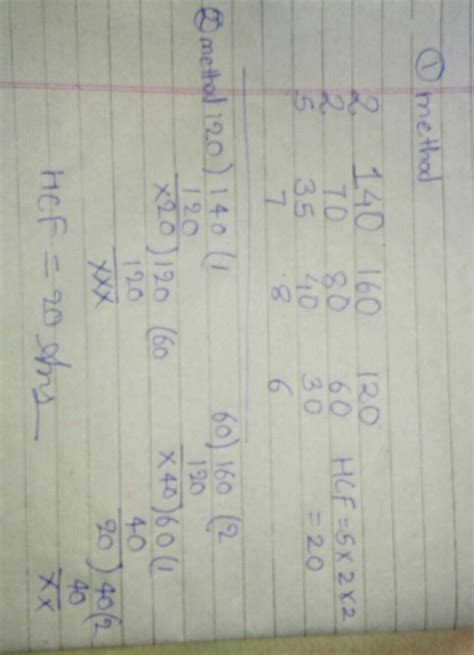 ① method
2 140 160 120
2 70 80 60 HCF = 5 x 2 x 2
5 35 40 30 = 20
7 8 6
② method 120 ) 140 ( 1 60 ) 160 ( 2
120 120
x20 ) 120 ( 60 x 40 ) 60 ( 1
120 40
xxx 20 ) 40 ( 2
40
HCF = 20 Ans xx